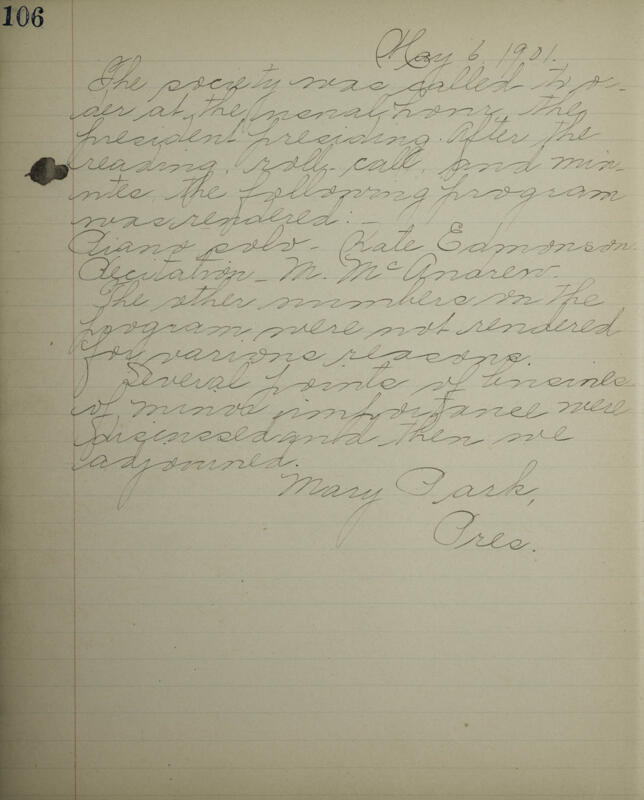 106
May 6, 1901.
The society was called to or-
der at the usual hour, the
president presiding. After the
reading, roll-call, and min-
utes, the following program
was rendered:-
Piano solo - Kate Edmonson.
Recitation - M. McAndrew.
The other numbers on the
program were not rendered
for various reasons.
Several points of business
of minor importance were
discussed and then we
adjourned.
Mary Park,
Pres.